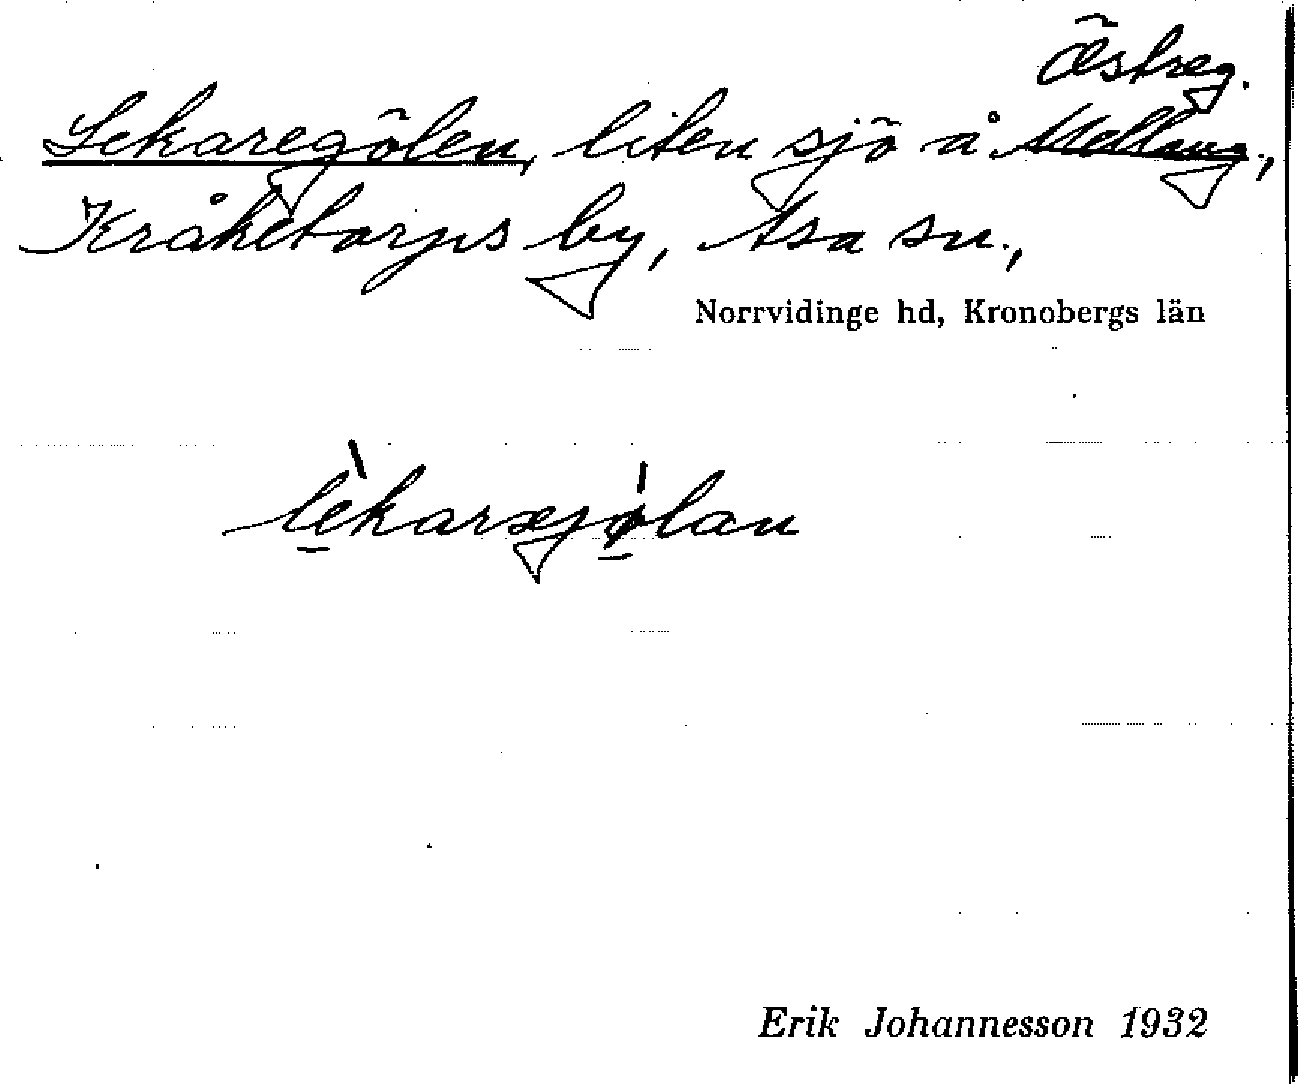 Östreg.
Lekaregölen, liten sjö å Mellang.,
Kråketorps by, Asa sn.,
Norrvidinge hd, Kronobergs län
lèkaræjølan
Erik Johannesson 1932